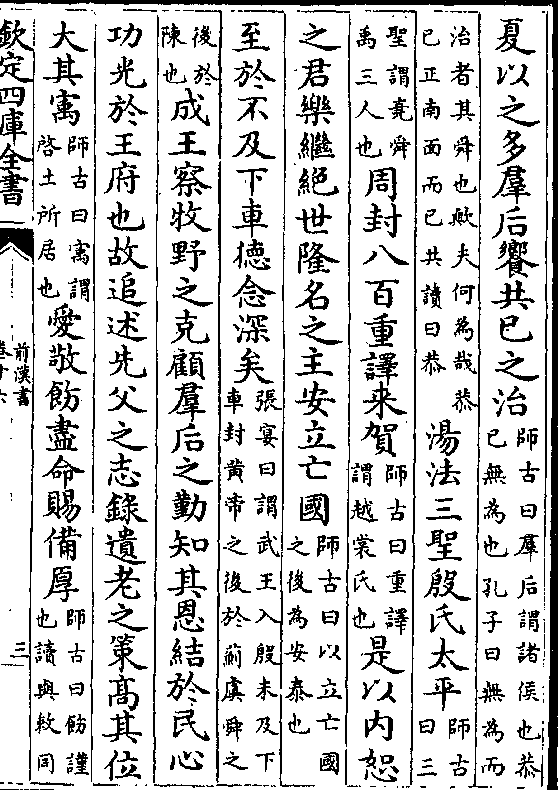 夏以之多羣后饗共已之治師古曰羣后謂諸侯也恭已無為也孔子曰無為而
治者其舜也歟夫何為哉恭已正南面而已共讀曰恭湯法三聖殷氏太平師古曰三
聖謂堯舜禹三人也周封八百重譯来賀師古曰重譯謂越裳氏也是以内恕
之君樂繼絕世隆名之主安立亡國師古曰以立亡國之後為安泰也
至於不及下車德念深矣張宴曰謂武王入殷未及下車封黄帝之後於薊虞舜之
後於陳也成王察牧野之克顧羣后之勤知其恩結於民心
功光於王府也故追述先父之志錄遺老之策髙其位
大其寓師古曰寓謂啓土所居也愛敬飭盡命賜備厚師古曰飭謹也讀與敕同
欽定四庫全書
前漢書
卷十六
三